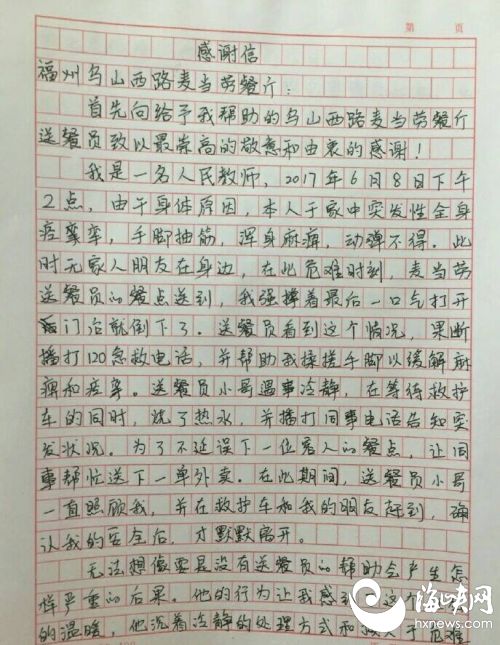 第 页
感谢信
福州乌山西路麦当劳餐厅：
首先向给予我帮助的乌山西路麦当劳餐厅
送餐员致以最崇高的敬意和由衷的感谢！
我是一名人民教师，2017年6月8日下午
2点，由于身体原因，本人于家中突发性全身
痉挛，手脚抽筋，浑身麻痹，动弹不得。此
时无家人朋友在身边，在此危难时刻，麦当劳
送餐员的餐点送到，我强撑着最后一口气打开
门后就倒下了。送餐员看到这个情况，果断
播打120急救电话，并帮助我揉搓手脚以缓解麻
痹和痉挛。送餐员小哥遇事冷静，在等待救护
车的同时，烧了热水，并播打同事电话告知突
发状况。为了不延误下一位客人的餐点，让同
事帮忙送下一单外卖。在此期间，送餐员小哥
一直照顾我，并在救护车和我的朋友赶到，确
认我的安全后，才默默离开。
无法想像要是没有送餐员的帮助会产生怎
样严重的后果。他的行为让我感到了这个
的温暖，他沉着冷静的处理方式和 于危难
海峡网
hxnews.com